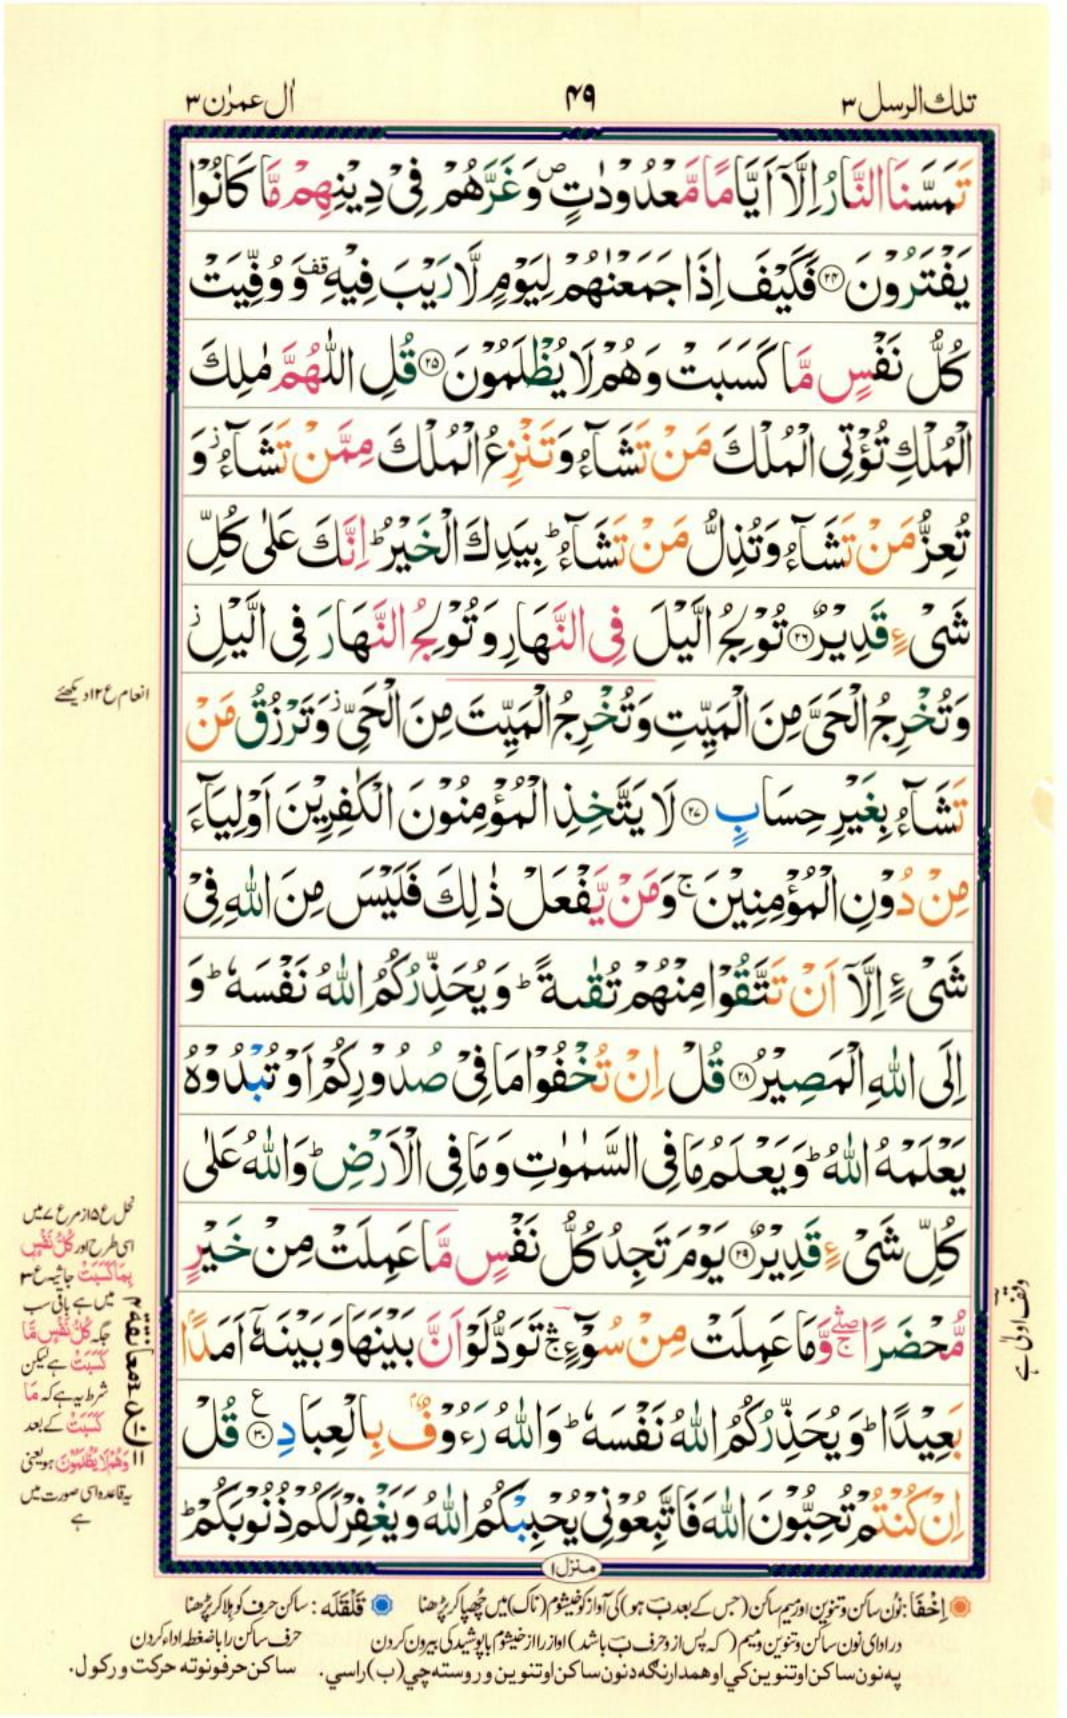 تلك الرسل ٣
٤٩
اٰل عمرٰن ٣
تَمَسَّنَا النَّارُ اِلَّاۤ اَيَّامًا مَّعْدُوْدٰتٍ ۪ وَغَرَّهُمْ فِىْ دِيْنِهِمْ مَّا كَانُوْا
يَفْتَرُوْنَ ﴿۲۴﴾ فَكَيْفَ اِذَا جَمَعْنٰهُمْ لِيَوْمٍ لَّا رَيْبَ فِيْهِ قف وَوُفِّيَتْ
كُلُّ نَفْسٍ مَّا كَسَبَتْ وَهُمْ لَا يُظْلَمُوْنَ ﴿۲۵﴾ قُلِ اللّٰهُمَّ مٰلِكَ
الْمُلْكِ تُؤْتِى الْمُلْكَ مَنْ تَشَآءُ وَتَنْزِعُ الْمُلْكَ مِمَّنْ تَشَآءُ ز وَ
تُعِزُّ مَنْ تَشَآءُ وَتُذِلُّ مَنْ تَشَآءُ ؕ بِيَدِكَ الْخَيْرُ ؕ اِنَّكَ عَلٰى كُلِّ
شَىْءٍ قَدِيْرٌ ﴿۲۶﴾ تُوْلِجُ الَّيْلَ فِى النَّهَارِ وَتُوْلِجُ النَّهَارَ فِى الَّيْلِ ز
وَتُخْرِجُ الْحَىَّ مِنَ الْمَيِّتِ وَتُخْرِجُ الْمَيِّتَ مِنَ الْحَىِّ ز وَتَرْزُقُ مَنْ
تَشَآءُ بِغَيْرِ حِسَابٍ ﴿۲۷﴾ لَا يَتَّخِذِ الْمُؤْمِنُوْنَ الْكٰفِرِيْنَ اَوْلِيَآءَ
مِنْ دُوْنِ الْمُؤْمِنِيْنَ ۚ وَمَنْ يَّفْعَلْ ذٰلِكَ فَلَيْسَ مِنَ اللّٰهِ فِىْ
شَىْءٍ اِلَّاۤ اَنْ تَتَّقُوْا مِنْهُمْ تُقٰىةً ؕ وَيُحَذِّرُكُمُ اللّٰهُ نَفْسَهٗ ؕ وَ
اِلَى اللّٰهِ الْمَصِيْرُ ﴿۲۸﴾ قُلْ اِنْ تُخْفُوْا مَا فِىْ صُدُوْرِكُمْ اَوْ تُبْدُوْهُ
يَعْلَمْهُ اللّٰهُ ؕ وَيَعْلَمُ مَا فِى السَّمٰوٰتِ وَمَا فِى الْاَرْضِ ؕ وَاللّٰهُ عَلٰى
كُلِّ شَىْءٍ قَدِيْرٌ ﴿۲۹﴾ يَوْمَ تَجِدُ كُلُّ نَفْسٍ مَّا عَمِلَتْ مِنْ خَيْرٍ
مُّحْضَرًا ۛۖۚ وَّمَا عَمِلَتْ مِنْ سُوْٓءٍ ۛۚ تَوَدُّ لَوْ اَنَّ بَيْنَهَا وَبَيْنَهٗۤ اَمَدًۢا
بَعِيْدًا ؕ وَيُحَذِّرُكُمُ اللّٰهُ نَفْسَهٗ ؕ وَاللّٰهُ رَءُوْفٌۢ بِالْعِبَادِ ﴿۳۰﴾ ع قُلْ
اِنْ كُنْتُمْ تُحِبُّوْنَ اللّٰهَ فَاتَّبِعُوْنِىْ يُحْبِبْكُمُ اللّٰهُ وَيَغْفِرْ لَكُمْ ذُنُوْبَكُمْ ؕ
منزل ۱
انعام ع ۱۲ دیکھئے
اسی طرح اور كُلُّ نَفْسٍ
بِمَا كَسَبَتْ جاثیہ ع ۳
میں ہے باقی سب
جگہ كُلُّ نَفْسٍ مَّا
كَسَبَتْ ہے لیکن
شرط یہ ہے کہ مَا
كَسَبَتْ کے بعد
وَهُمْ لَا يُظْلَمُوْنَ ہو یعنی
یہ قاعدہ اسی صورت میں
ہے
وقف اولٰی ہے
اِخْفَا: نون ساکن و تنوین اور میم ساکن (جس کے بعد ب ہو) کی آواز کو خیشوم (ناک) میں چھپا کر پڑھنا
قَلْقَلَه: ساکن حرف کو ہلا کر پڑھنا
در ادای نون ساکن و تنوین و میم (که پس از و حرف ب باشد) آواز را از خیشوم با پوشیدگی بیرون کردن
حرف ساکن را با ضغطه ادا کردن
په نون ساکن او تنوین کي او همدارنګه د نون ساکن او تنوین وروسته چي (ب) راسي.
ساکن حرفونو ته حرکت ورکول.